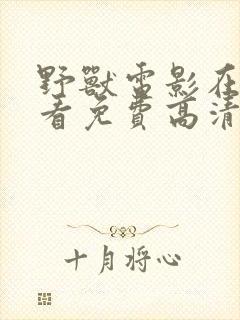 野獸雷影在
看免費高清
十月将心